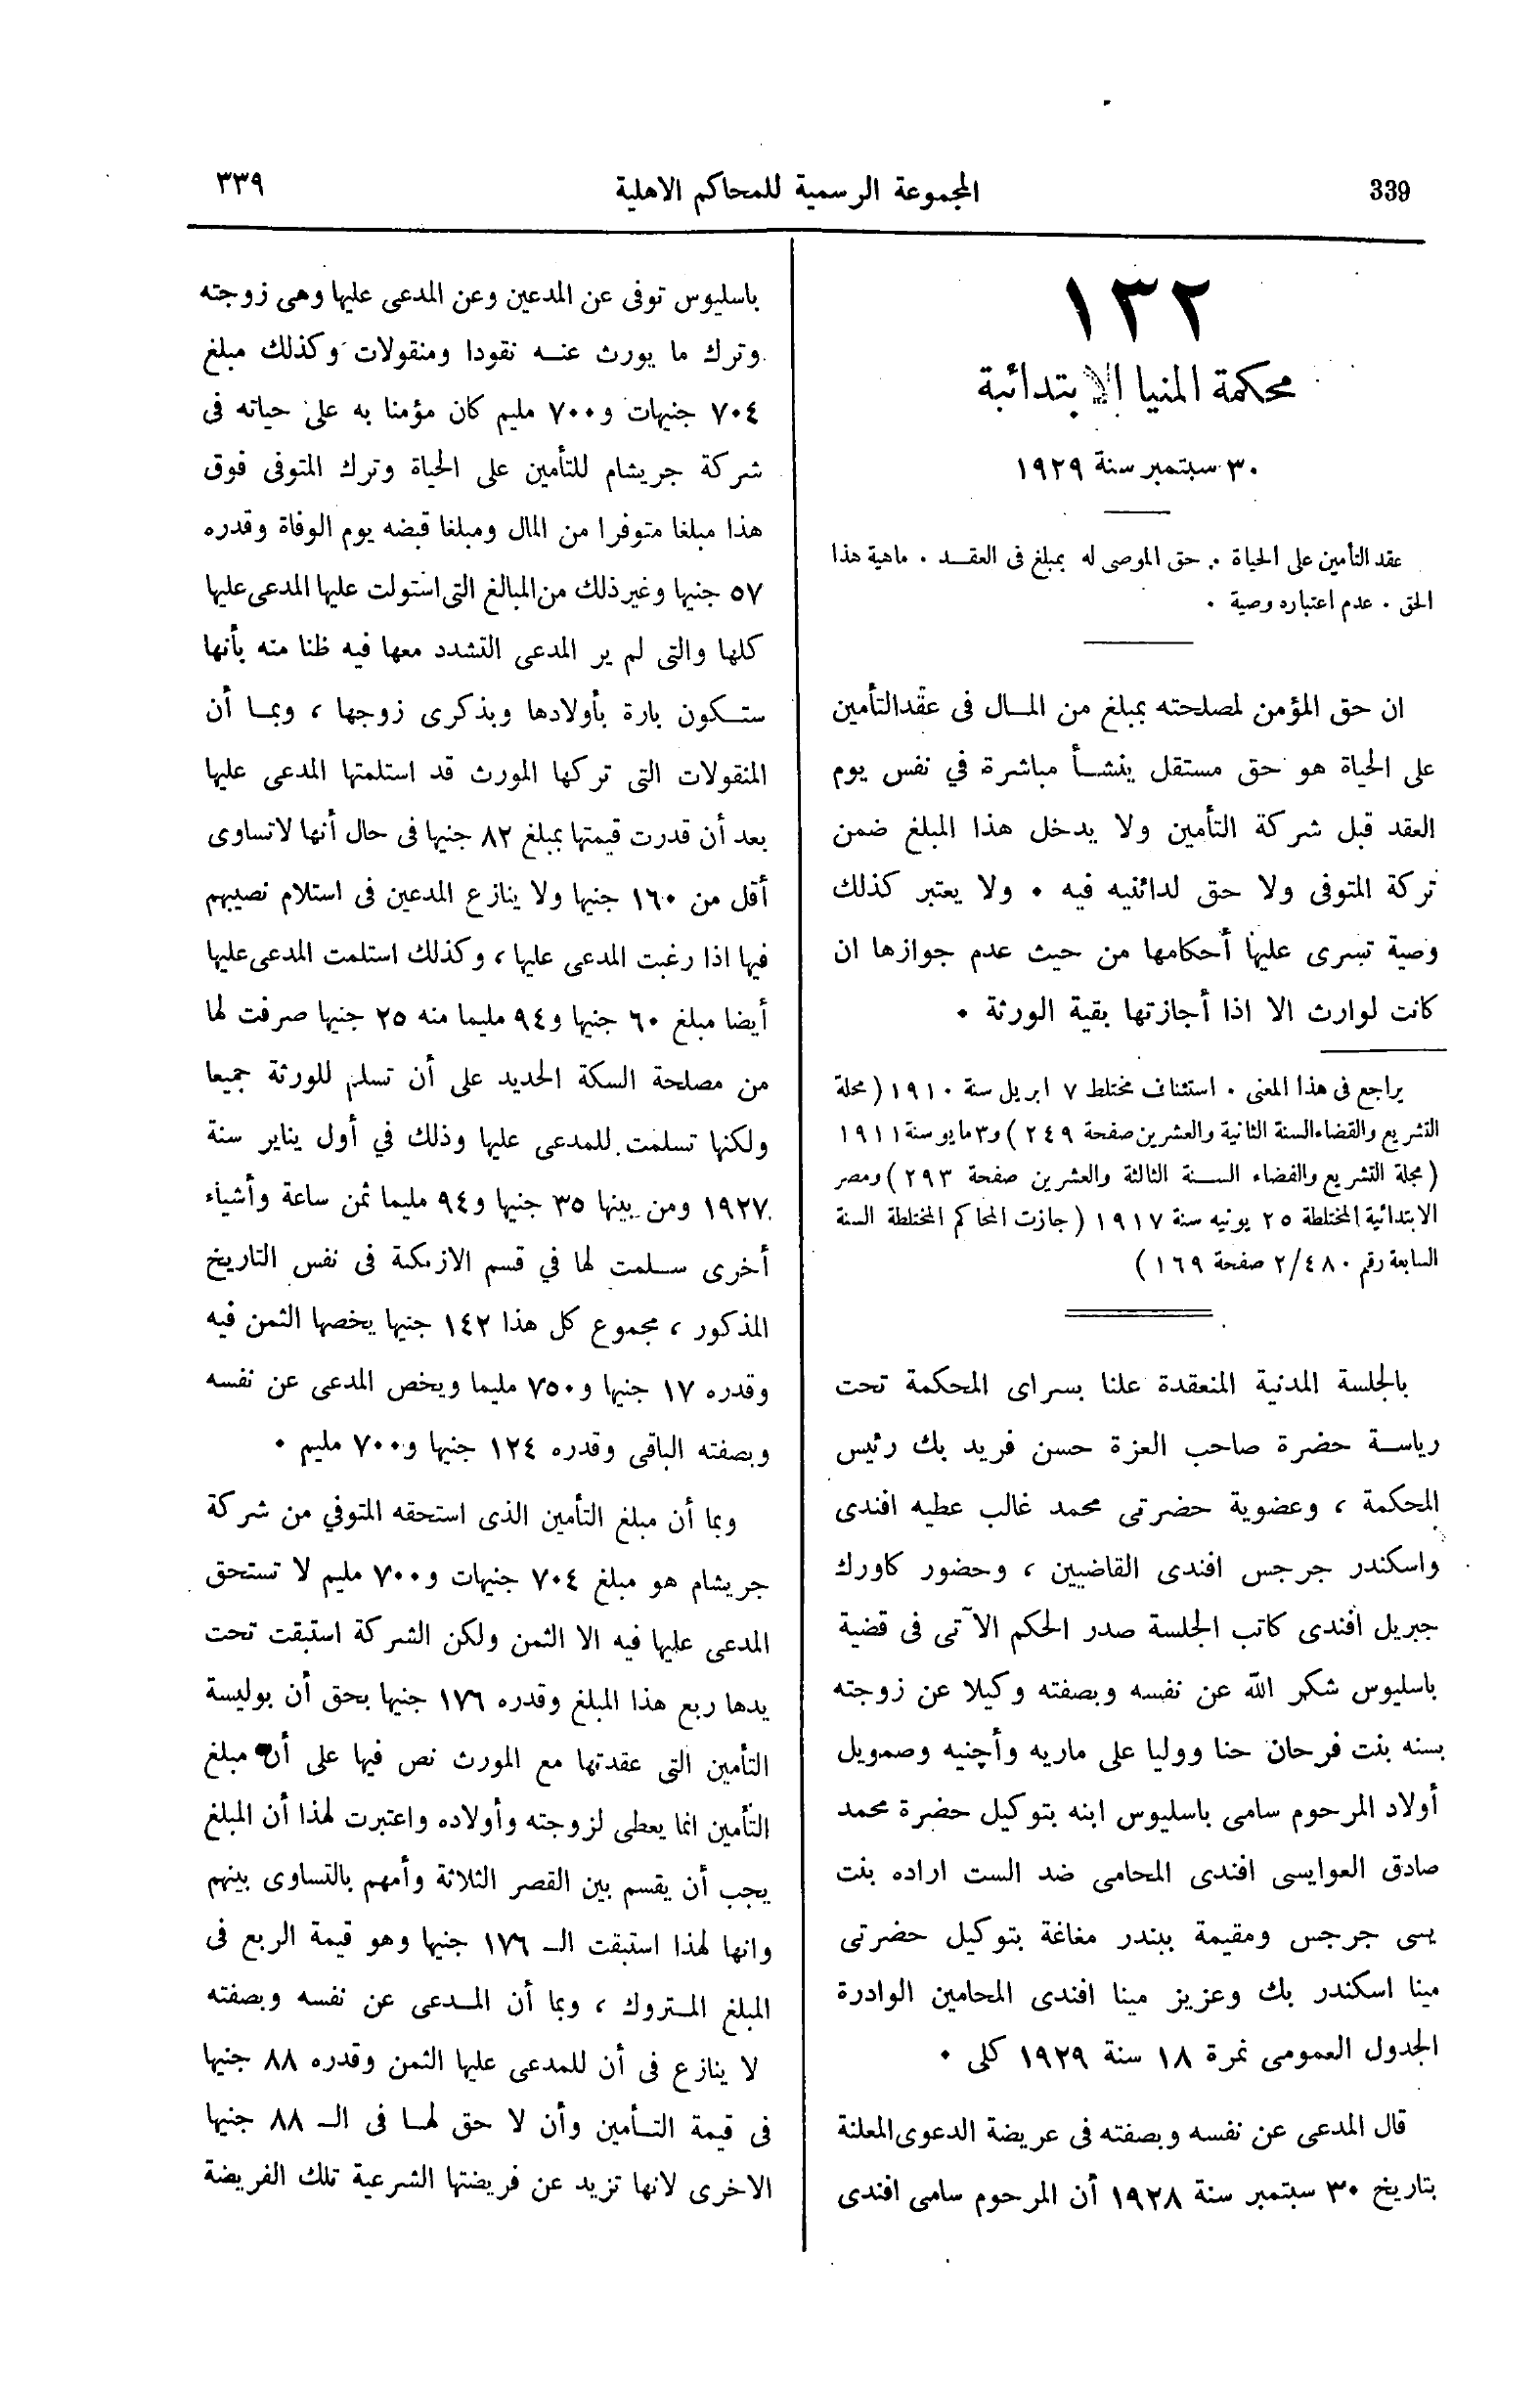 339
المجموعة الرسمية للمحاكم الاهلية
٣٣٩
١٣٢
محكمة المنيا الابتدائية
٣٠ سبتمبر سنة ١٩٢٩
عقد التأمين على الحياة . حق الموصى له بمبلغ فى العقد . ماهية هذا
الحق . عدم اعتباره وصية .
ان حق المؤمن لمصلحته بمبلغ من المال فى عقد التأمين
على الحياة هو حق مستقل ينشأ مباشرة في نفس يوم
العقد قبل شركة التأمين ولا يدخل هذا المبلغ ضمن
تركة المتوفى ولا حق لدائنيه فيه . ولا يعتبر كذلك
وصية تسرى عليها أحكامها من حيث عدم جوازها ان
كانت لوارث الا اذا أجازتها بقية الورثة .
يراجع فى هذا المعنى . استئناف مختلط ٧ ابريل سنة ١٩١٠ (مجلة
التشريع والقضاء السنة الثانية والعشرين صفحة ٢٤٩) و٣ مايو سنة ١٩١١
(مجلة التشريع والقضاء السنة الثالثة والعشرين صفحة ٢٩٣) ومصر
الابتدائية المختلطة ٢٥ يونيه سنة ١٩١٧ (جازت المحاكم المختلطة السنة
السابعة رقم ٢/٤٨٠ صفحة ١٦٩)
بالجلسة المدنية المنعقدة علنا بسراى المحكمة تحت
رياسة حضرة صاحب العزة حسن فريد بك رئيس
المحكمة ، وعضوية حضرتى محمد غالب عطيه افندى
واسكندر جرجس افندى القاضيين ، وحضور كاورك
جبريل افندى كاتب الجلسة صدر الحكم الآتى فى قضية
باسليوس شكر الله عن نفسه وبصفته وكيلا عن زوجته
بسنه بنت فرحان حنا ووليا على ماريه وأچنيه وصمويل
أولاد المرحوم سامى باسليوس ابنه بتوكيل حضرة محمد
صادق العوايسى افندى المحامى ضد الست اراده بنت
يسى جرجس ومقيمة ببندر مغاغة بتوكيل حضرتى
مينا اسكندر بك وعزيز مينا افندى المحامين الوادرة
الجدول العمومى نمرة ١٨ سنة ١٩٢٩ كلى .
قال المدعى عن نفسه وبصفته فى عريضة الدعوى المعلنة
بتاريخ ٣٠ سبتمبر سنة ١٩٢٨ أن المرحوم سامى افندى
باسليوس توفى عن المدعين وعن المدعى عليها وهى زوجته
وترك ما يورث عنه نقودا ومنقولات وكذلك مبلغ
٧٠٤ جنيهات و٧٠٠ مليم كان مؤمنا به على حياته فى
شركة جريشام للتأمين على الحياة وترك المتوفى فوق
هذا مبلغا متوفرا من المال ومبلغا قبضه يوم الوفاة وقدره
٥٧ جنيها وغير ذلك من المبالغ التى استولت عليها المدعى عليها
كلها والتى لم ير المدعى التشدد معها فيه ظنا منه بأنها
ستكون بارة بأولادها وبذكرى زوجها ، وبما أن
المنقولات التى تركها المورث قد استلمتها المدعى عليها
بعد أن قدرت قيمتها بمبلغ ٨٢ جنيها فى حال أنها لا تساوى
أقل من ١٦٠ جنيها ولا ينازع المدعين فى استلام نصيبهم
فيها اذا رغبت المدعى عليها ، وكذلك استلمت المدعى عليها
أيضا مبلغ ٦٠ جنيها و٩٤ مليما منه ٢٥ جنيها صرفت لها
من مصلحة السكة الحديد على أن تسلم للورثة جميعا
ولكنها تسلمت للمدعى عليها وذلك في أول يناير سنة
١٩٢٧ ومن بينها ٣٥ جنيها و٩٤ مليما ثمن ساعة وأشياء
أخرى سلمت لها في قسم الازبكية فى نفس التاريخ
المذكور ، مجموع كل هذا ١٤٢ جنيها يخصها الثمن فيه
وقدره ١٧ جنيها و٧٥٠ مليما ويخص المدعى عن نفسه
وبصفته الباقى وقدره ١٢٤ جنيها و٧٠٠ مليم .
وبما أن مبلغ التأمين الذى استحقه المتوفي من شركة
جريشام هو مبلغ ٧٠٤ جنيهات و٧٠٠ مليم لا تستحق
المدعى عليها فيه الا الثمن ولكن الشركة استبقت تحت
يدها ربع هذا المبلغ وقدره ١٧٦ جنيها بحق أن بوليسة
التأمين التى عقدتها مع المورث نص فيها على أن مبلغ
التأمين انما يعطى لزوجته وأولاده واعتبرت لهذا أن المبلغ
يجب أن يقسم بين القصر الثلاثة وأمهم بالتساوى بينهم
وانها لهذا استبقت الـ ١٧٦ جنيها وهو قيمة الربع فى
المبلغ المتروك ، وبما أن المدعى عن نفسه وبصفته
لا ينازع فى أن للمدعى عليها الثمن وقدره ٨٨ جنيها
فى قيمة التأمين وأن لا حق لها فى الـ ٨٨ جنيها
الاخرى لانها تزيد عن فريضتها الشرعية تلك الفريضة